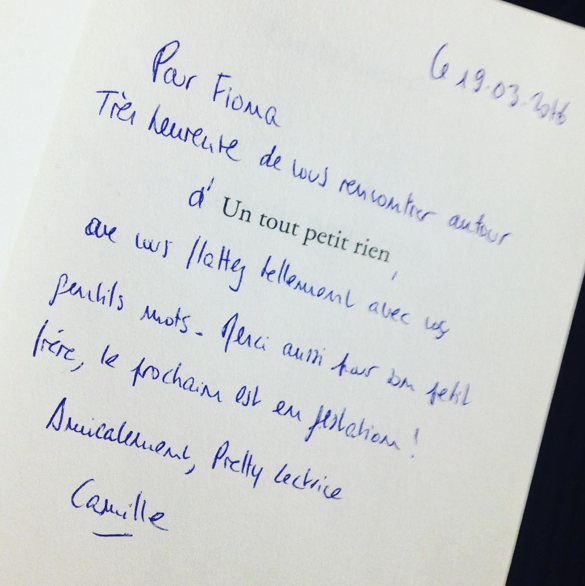 Le 19.03.2016
Pour Fiona
Très heureuse de vous rencontrer autour
d' Un tout petit rien,
que vous flattez tellement avec vos
gentils mots. Merci aussi pour son petit
frère, le prochain est en gestation !
Amicalement, Pretty lectrice
Camille